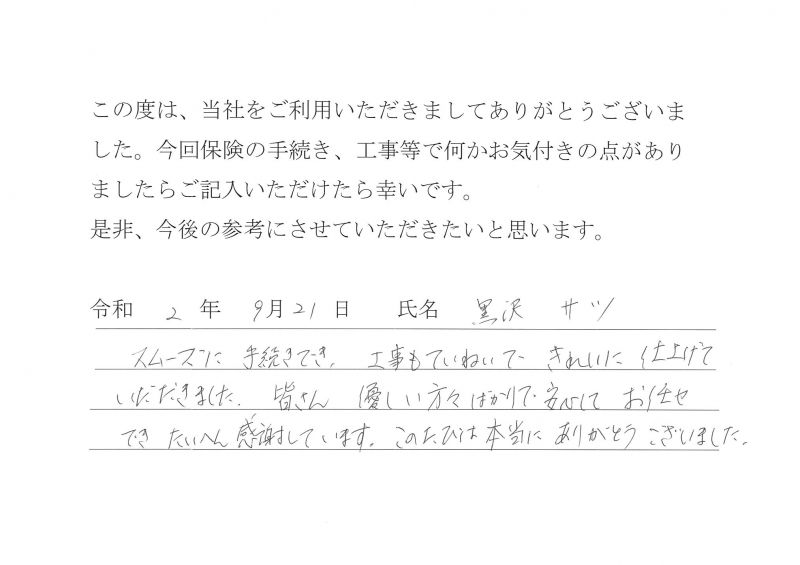 この度は、当社をご利用いただきましてありがとうございま
した。今回保険の手続き、工事等で何かお気付きの点があり
ましたらご記入いただけたら幸いです。
是非、今後の参考にさせていただきたいと思います。
令和 2 年 9月21日 氏名 黒沢 サツ
スムーズに 手続きでき、工事もていねいで きれいに 仕上げて
いただきました。皆さん 優しい方々ばかりで 安心して お任せ
でき たいへん感謝しています。このたびは本当に ありがとう ございました。